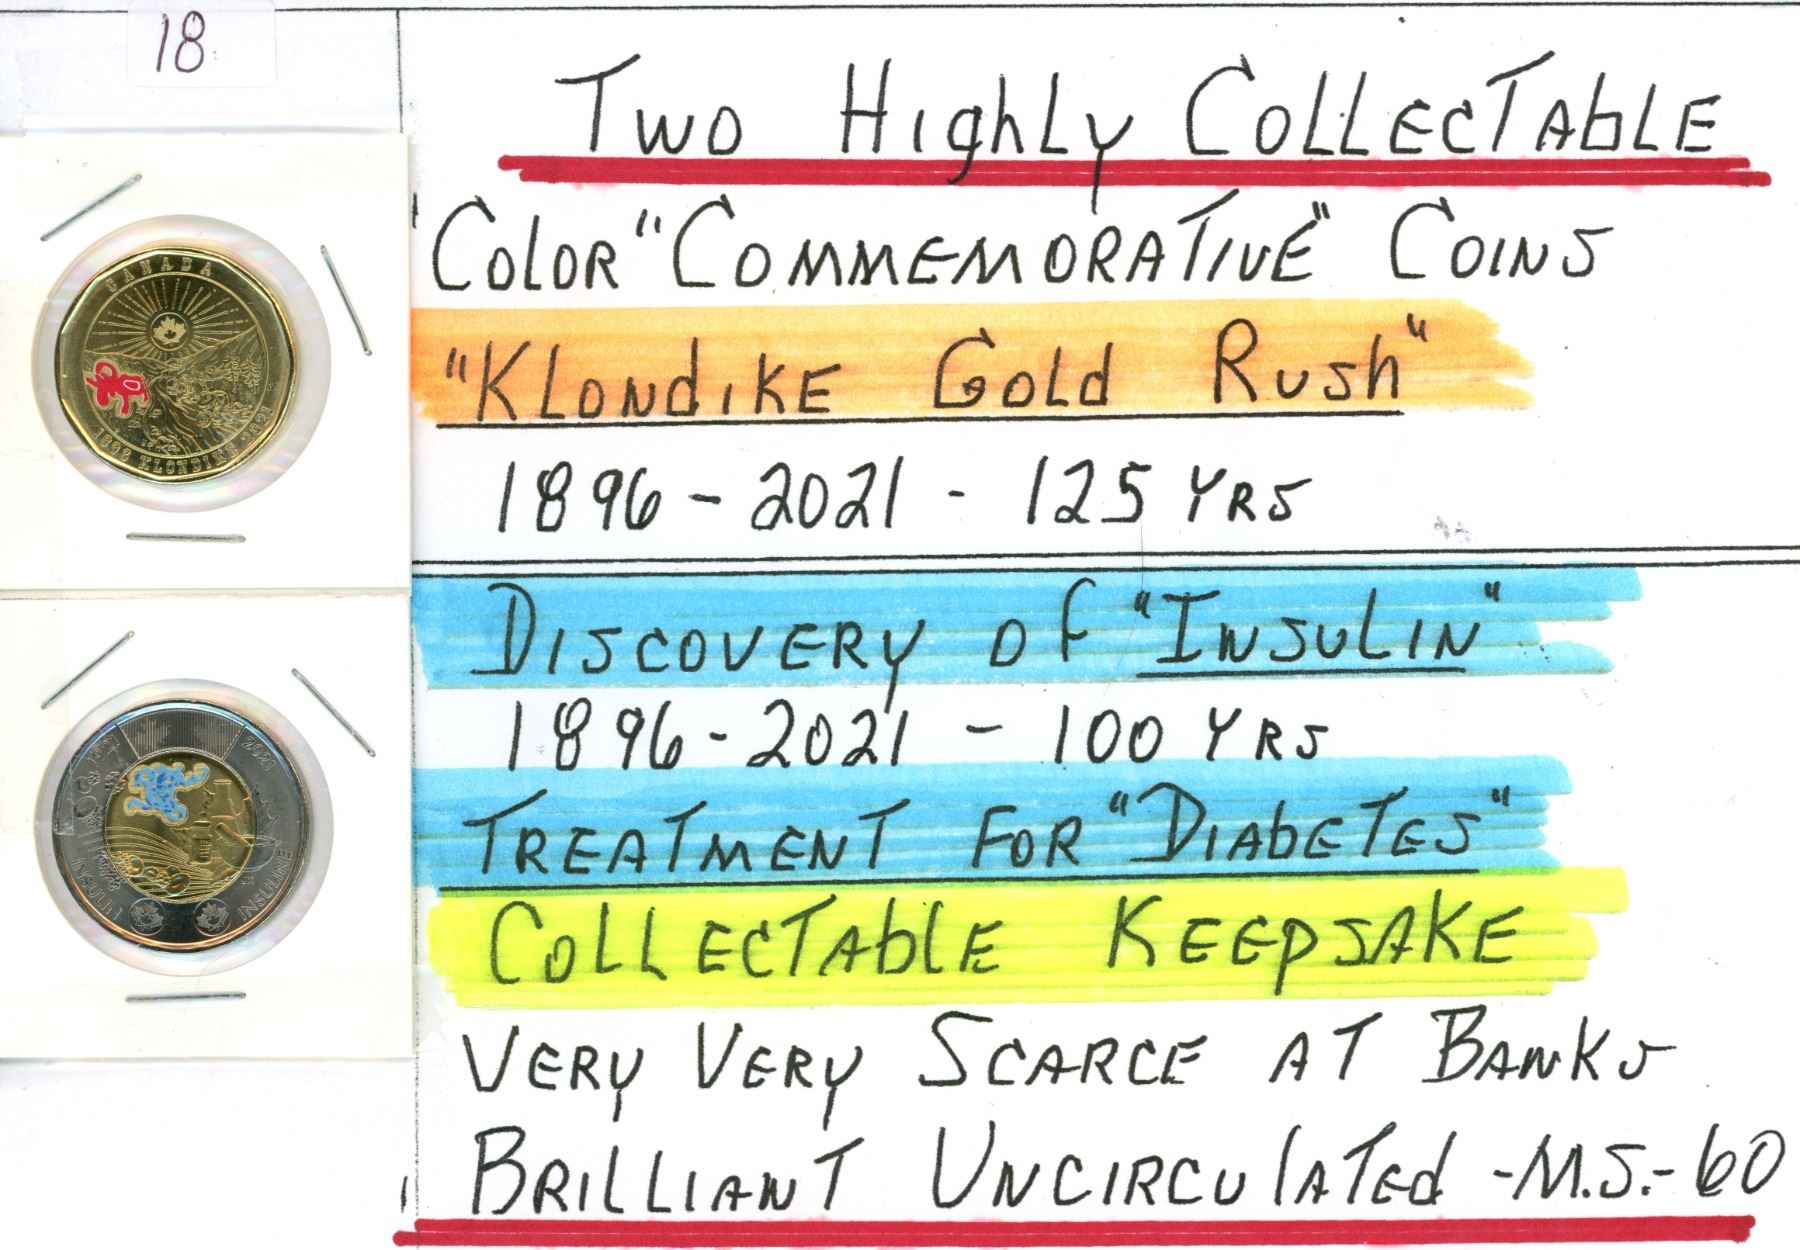 18
Two Highly Collectable
Color "Commemorative" Coins
"Klondike Gold Rush"
1896 - 2021 - 125 Yrs
Discovery of "Insulin"
1896 - 2021 - 100 Yrs
Treatment for "Diabetes"
Collectable Keepsake
Very Very Scarce at Banks
Brilliant Uncirculated - M.S. - 60
CANADA
KLONDIKE 2021
1921 2021
INSULIN INSULINE